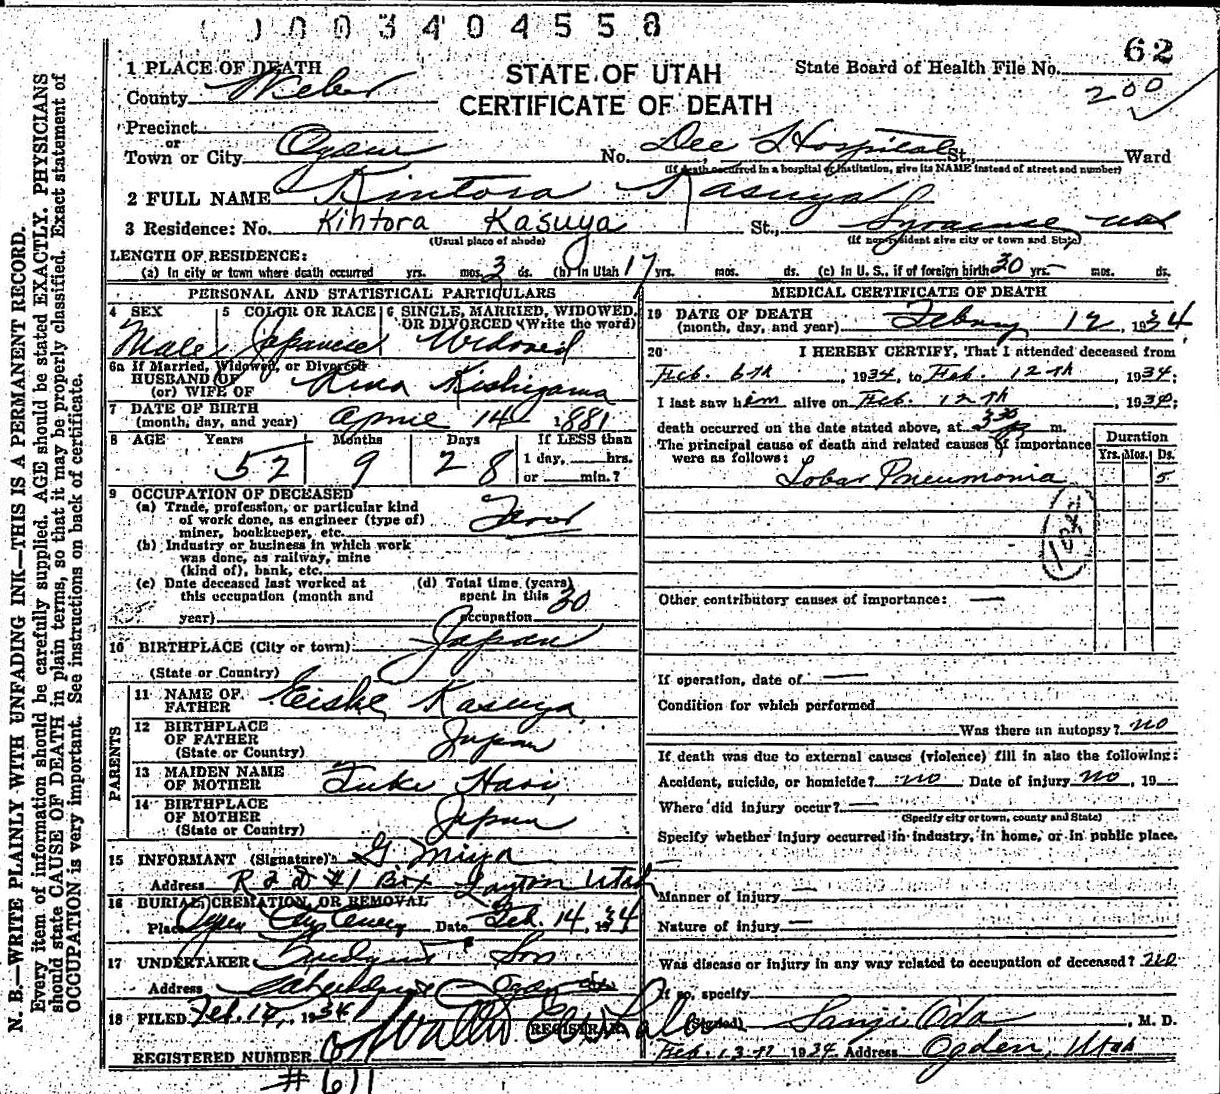 0003404558
62
1 PLACE OF DEATH
STATE OF UTAH
State Board of Health File No.
200
County Weber
CERTIFICATE OF DEATH
Precinct
or
Town or City Ogden No. Dee Hospital St., Ward
(If death occurred in a hospital or institution, give its NAME instead of street and number)
2 FULL NAME Kintora Kasuya
3 Residence: No. Kintora Kasuya St., Syracuse Utah
(Usual place of abode) (If non-resident give city or town and State)
LENGTH OF RESIDENCE:
(a) In city or town where death occurred yrs. mos. 3 ds. (b) In Utah 17 yrs. mos. ds. (c) In U. S., if of foreign birth 30 yrs. mos. ds.
PERSONAL AND STATISTICAL PARTICULARS
4 SEX 5 COLOR OR RACE 6 SINGLE, MARRIED, WIDOWED, OR DIVORCED (Write the word)
Male Japanese Widowed
6a If Married, Widowed, or Divorced
HUSBAND OF
(or) WIFE OF Kishiyama
7 DATE OF BIRTH
(month, day, and year) April 14 1881
8 AGE Years Months Days If LESS than
52 9 28 1 day, hrs.
or min.?
9 OCCUPATION OF DECEASED
(a) Trade, profession, or particular kind
of work done, as engineer (type of)
miner, bookkeeper, etc.
(b) Industry or business in which work
was done, as railway, mine
(kind of), bank, etc.
(c) Date deceased last worked at (d) Total time (years)
this occupation (month and spent in this 30
year) occupation
10 BIRTHPLACE (City or town) Japan
(State or Country)
PARENTS
11 NAME OF
FATHER Eiske Kasuya
12 BIRTHPLACE
OF FATHER Japan
(State or Country)
13 MAIDEN NAME
OF MOTHER Hari
14 BIRTHPLACE
OF MOTHER Japan
(State or Country)
15 INFORMANT (Signature) G. Miya
Address R F D #1 Box Layton Utah
16 BURIAL, CREMATION, OR REMOVAL
Place Ogden City Cemetery Date Feb. 14, 1934
17 UNDERTAKER & Son
Address Ogden
18 FILED Feb. 1934
REGISTRAR
REGISTERED NUMBER
#611
MEDICAL CERTIFICATE OF DEATH
19 DATE OF DEATH
(month, day, and year) Febury 12, 1934
20 I HEREBY CERTIFY, That I attended deceased from
Feb. 6th, 1934, to Feb. 12th, 1934;
I last saw him alive on Feb. 12th, 1934;
death occurred on the date stated above, at 3:30 m.
The principal cause of death and related causes of importance
were as follows:
Duration
Yrs. Mos. Ds.
Lobar Pneumonia 5
Other contributory causes of importance: —
If operation, date of —
Condition for which performed
Was there an autopsy? no
If death was due to external causes (violence) fill in also the following:
Accident, suicide, or homicide? no Date of injury no, 19
Where did injury occur? —
(Specify city or town, county and State)
Specify whether injury occurred in industry, in home, or in public place.
—
Manner of injury —
Nature of injury —
Was disease or injury in any way related to occupation of deceased? no
If so, specify
(Signed) Sanji Oda, M. D.
Feb. 13th 1934 Address Ogden, Utah
N. B.—WRITE PLAINLY WITH UNFADING INK—THIS IS A PERMANENT RECORD.
Every item of information should be carefully supplied. AGE should be stated EXACTLY. PHYSICIANS
should state CAUSE OF DEATH in plain terms, so that it may be properly classified. Exact statement of
OCCUPATION is very important. See instructions on back of certificate.